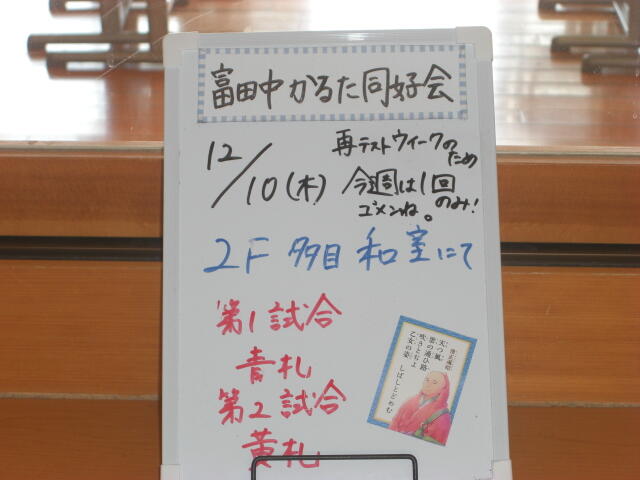 富田中かるた同好会
12/10(木)
再テストウィークのため
今週は1回のみ!
ゴメンね。
2F 多目 和室にて
第1試合
青札
第2試合
黄札
僧正遍昭
天つ風
雲の通ひ路
吹きとぢよ
乙女の姿
しばしとどめむ